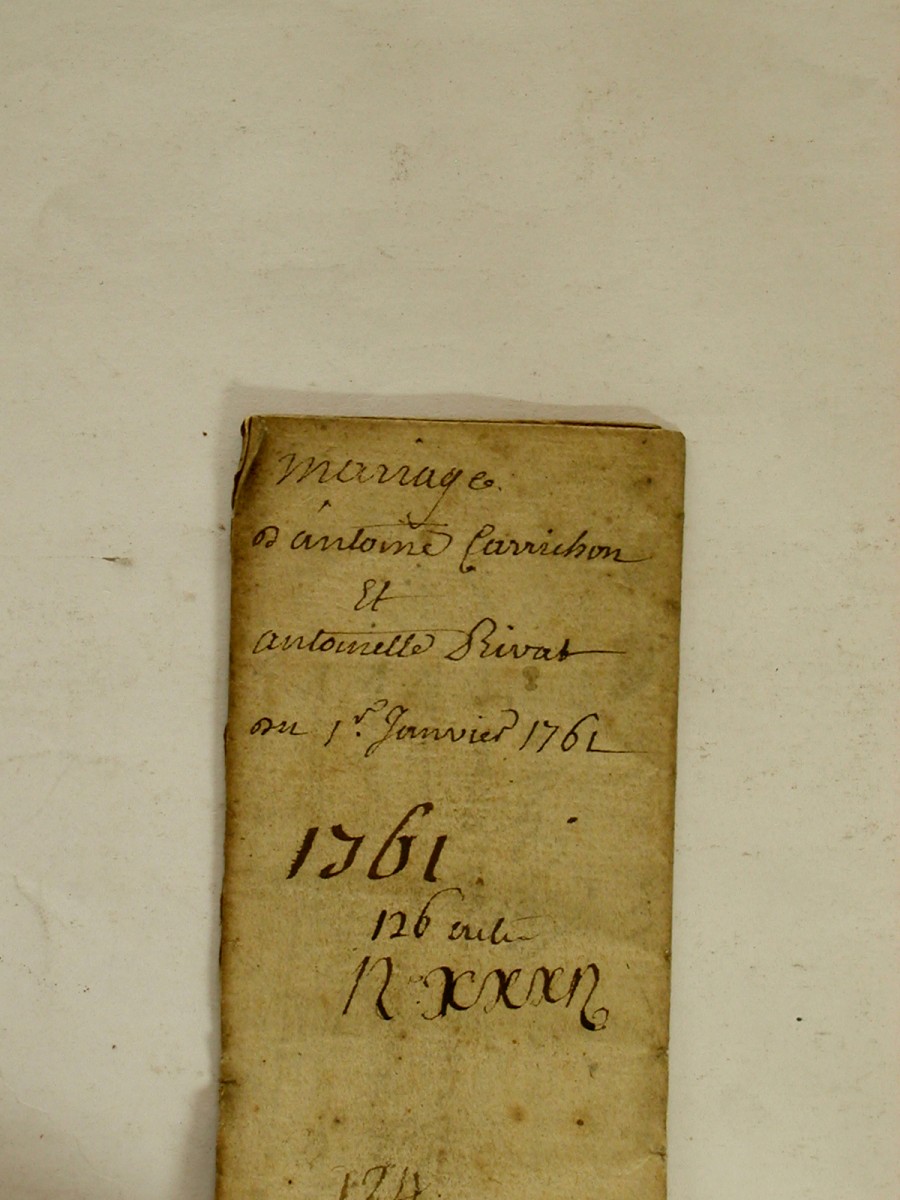 Mariage
d'antoine Carrichon
Et
antoinette Rivat
du 1r. Janvier 1761
1761
126
N XXX
124